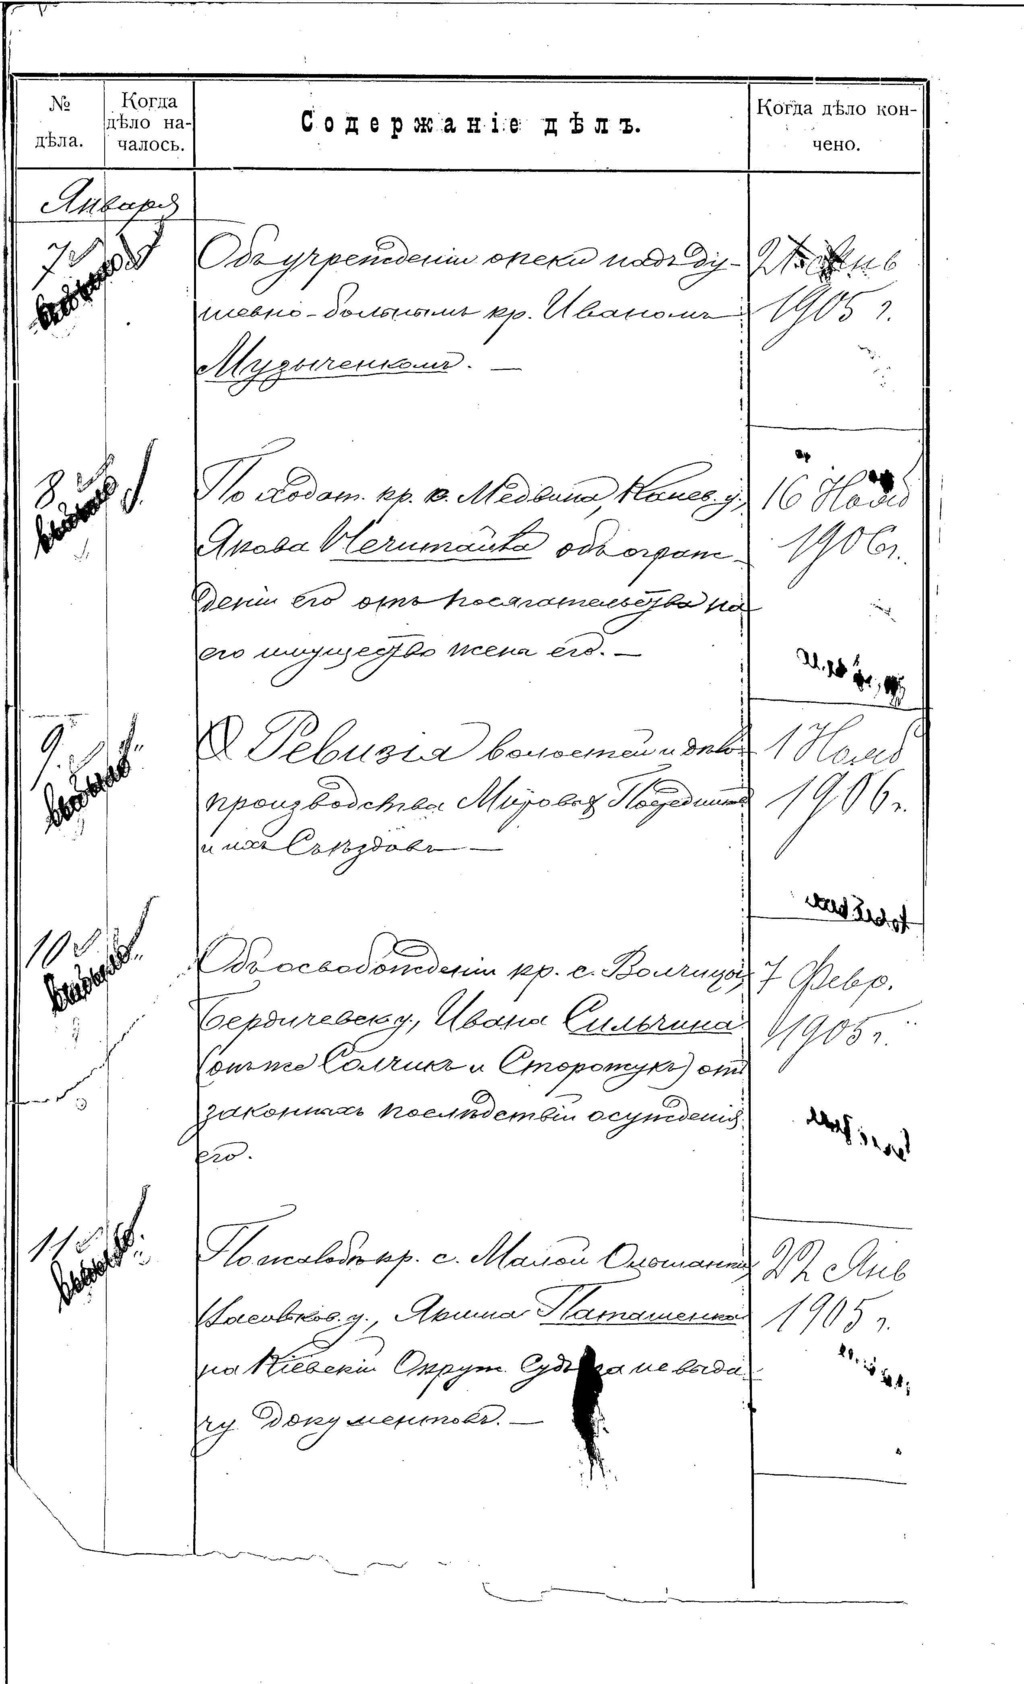 № дѣла.
Когда дѣло началось.
Содержаніе дѣлъ.
Когда дѣло кончено.
Января
7
Объ учрежденіи опеки надъ ду-
шевно-больнымъ кр. Иваномъ
Музыченкомъ. —
21 Янв
1905 г.
8
По ходат. кр. м. Медвина, Канев. у.,
Якова Нечитайла объ ограж-
деніи его отъ посягательства на
его имущество жены его. —
16 Нояб
1906 г.
9.
О Ревизіи волостей и дѣло-
производства Мировых Посредников
и ихъ Съѣздовъ —
1 Нояб
1906 г.
10
Объ освобожденіи кр. с. Волчицы,
Бердичевск. у., Ивана Сильчина
(онъ же Салчикъ и Сторожукъ) отъ
законныхъ послѣдствій осужденія
его.
7 Февр.
1905 г.
11
По жалобѣ кр. с. Малой Ольшанки,
Васильков. у., Якима Паташенка
на Кіевскій Окруж. Судъ за не выда-
чу документовъ. —
22 Янв
1905 г.